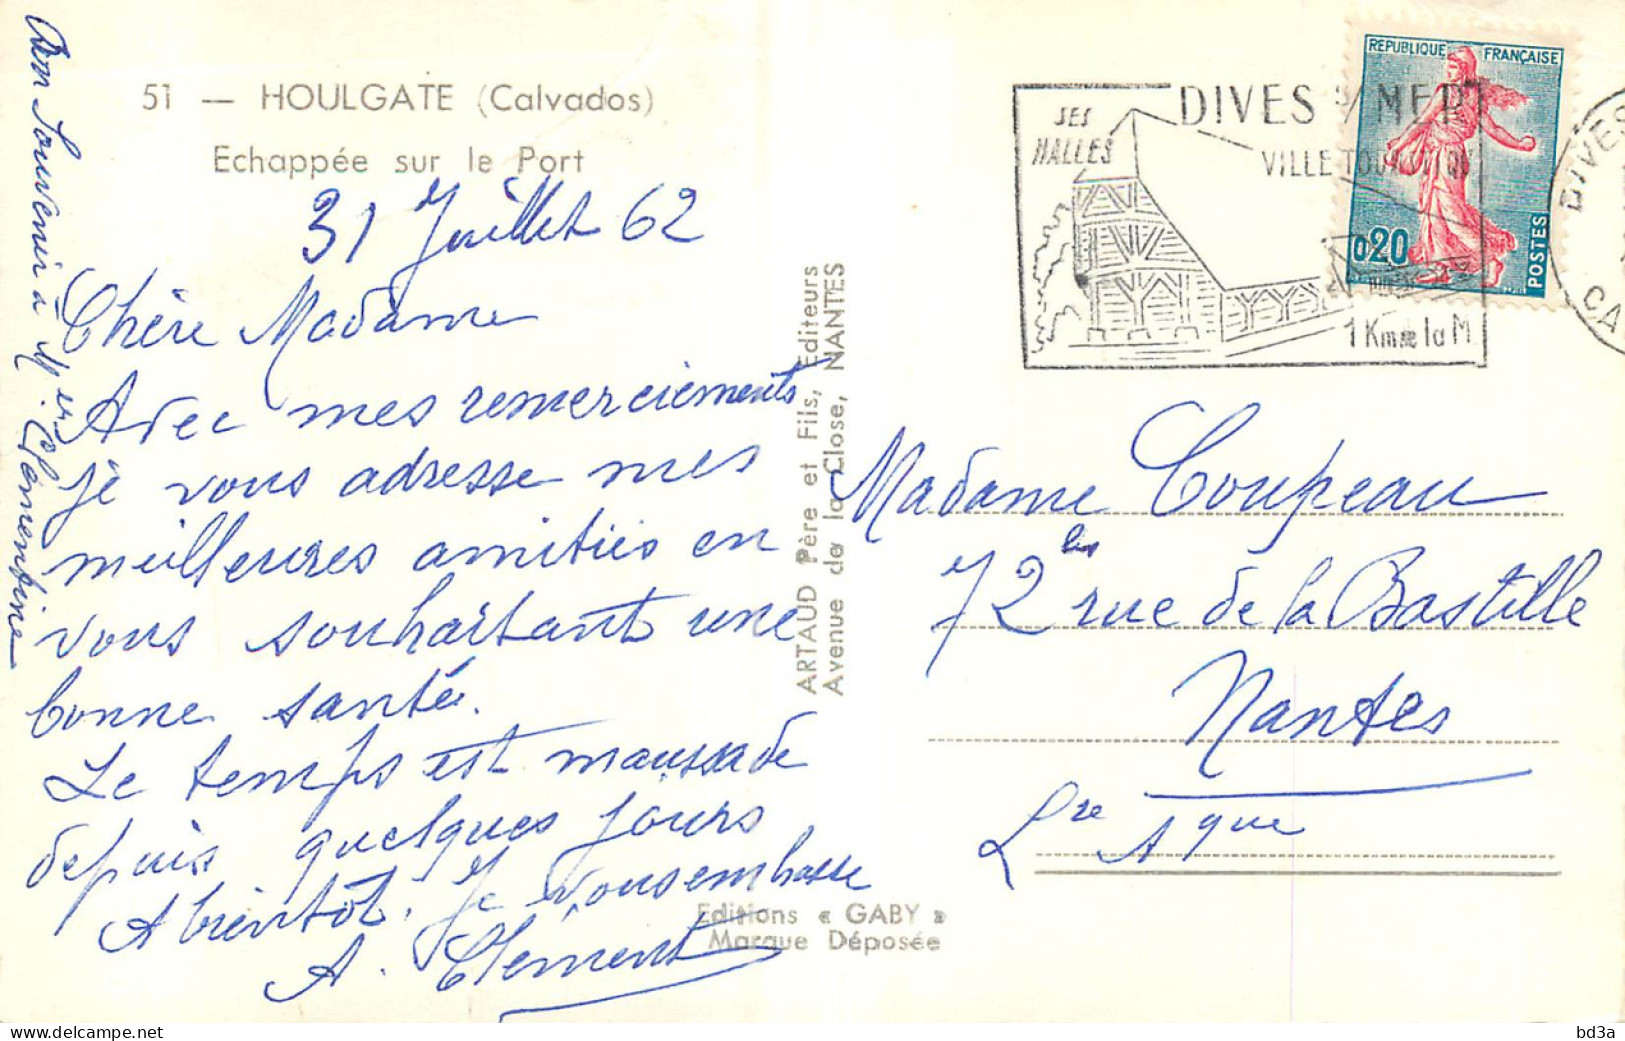 51 — HOULGATE (Calvados)
Echappée sur le Port
31 Juillet 62
Chère Madame
Avec mes remerciements
je vous adresse mes
meilleures amitiés en
vous souhaitant une
bonne santé.
Le temps est maussade
depuis quelques jours
A bientôt. Je vous embrasse
A. Clément
Bon Souvenir à Clémentine
ARTAUD Père et Fils, Editeurs
Avenue de la Close, NANTES
Editions « GABY »
Marque Déposée
SES
HALLES
DIVES S/ MER
VILLE
1 Km de la M
REPUBLIQUE FRANÇAISE
0,20
POSTES
DIVES
CA
Madame Coupeau
72 bis rue de la Bastille
Nantes
Lre Aque
bd3a